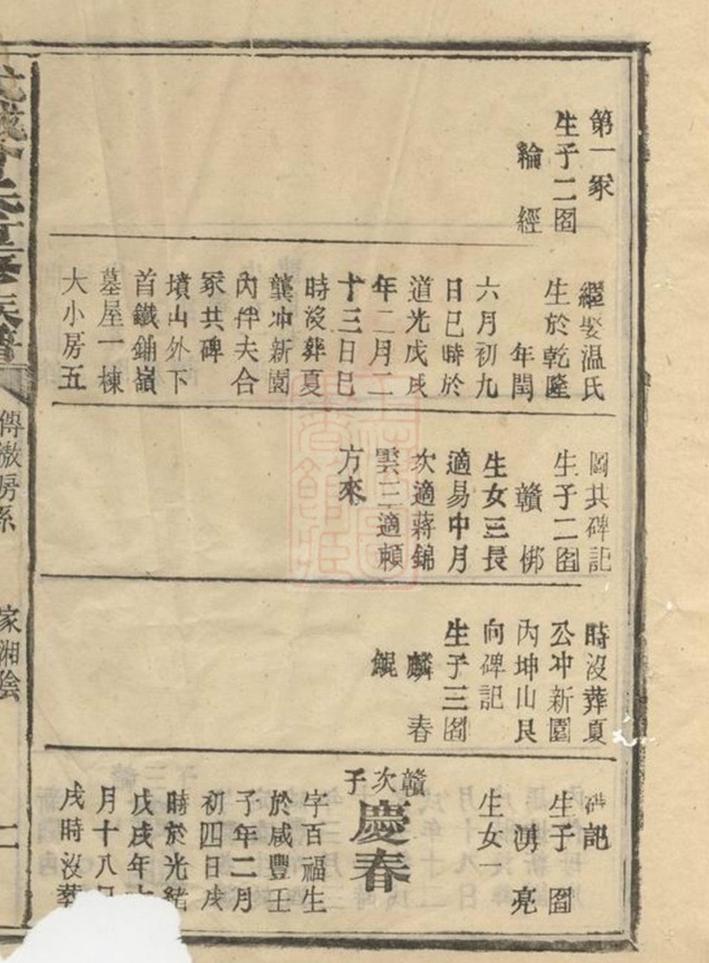 第一冢
生子二
綸經
繼娶温氏
生於乾隆
年閏
六月初九
日巳時於
道光戊戌
年二月二
十三日巳
時没葬夏
龔冲新園
内伴夫合
冢共碑
墳山外下
首鐵鋪嶺
墓屋一棟
大小房五
園共碑記
生子二
贛梆
生女三長
適易中月
次適蔣錦
雲三適賴
方來
時没葬夏
公冲新園
内坤山艮
向碑記
生子三
麟春
鯤
碑記
生子
湧亮
生女一
贛次子
慶春
字百福生
於咸豐壬
子年二月
初四日戌
時於光緒
戊戌年
月十八日
戌時没葬
氏重修族譜
傳徽房系
家湘陰